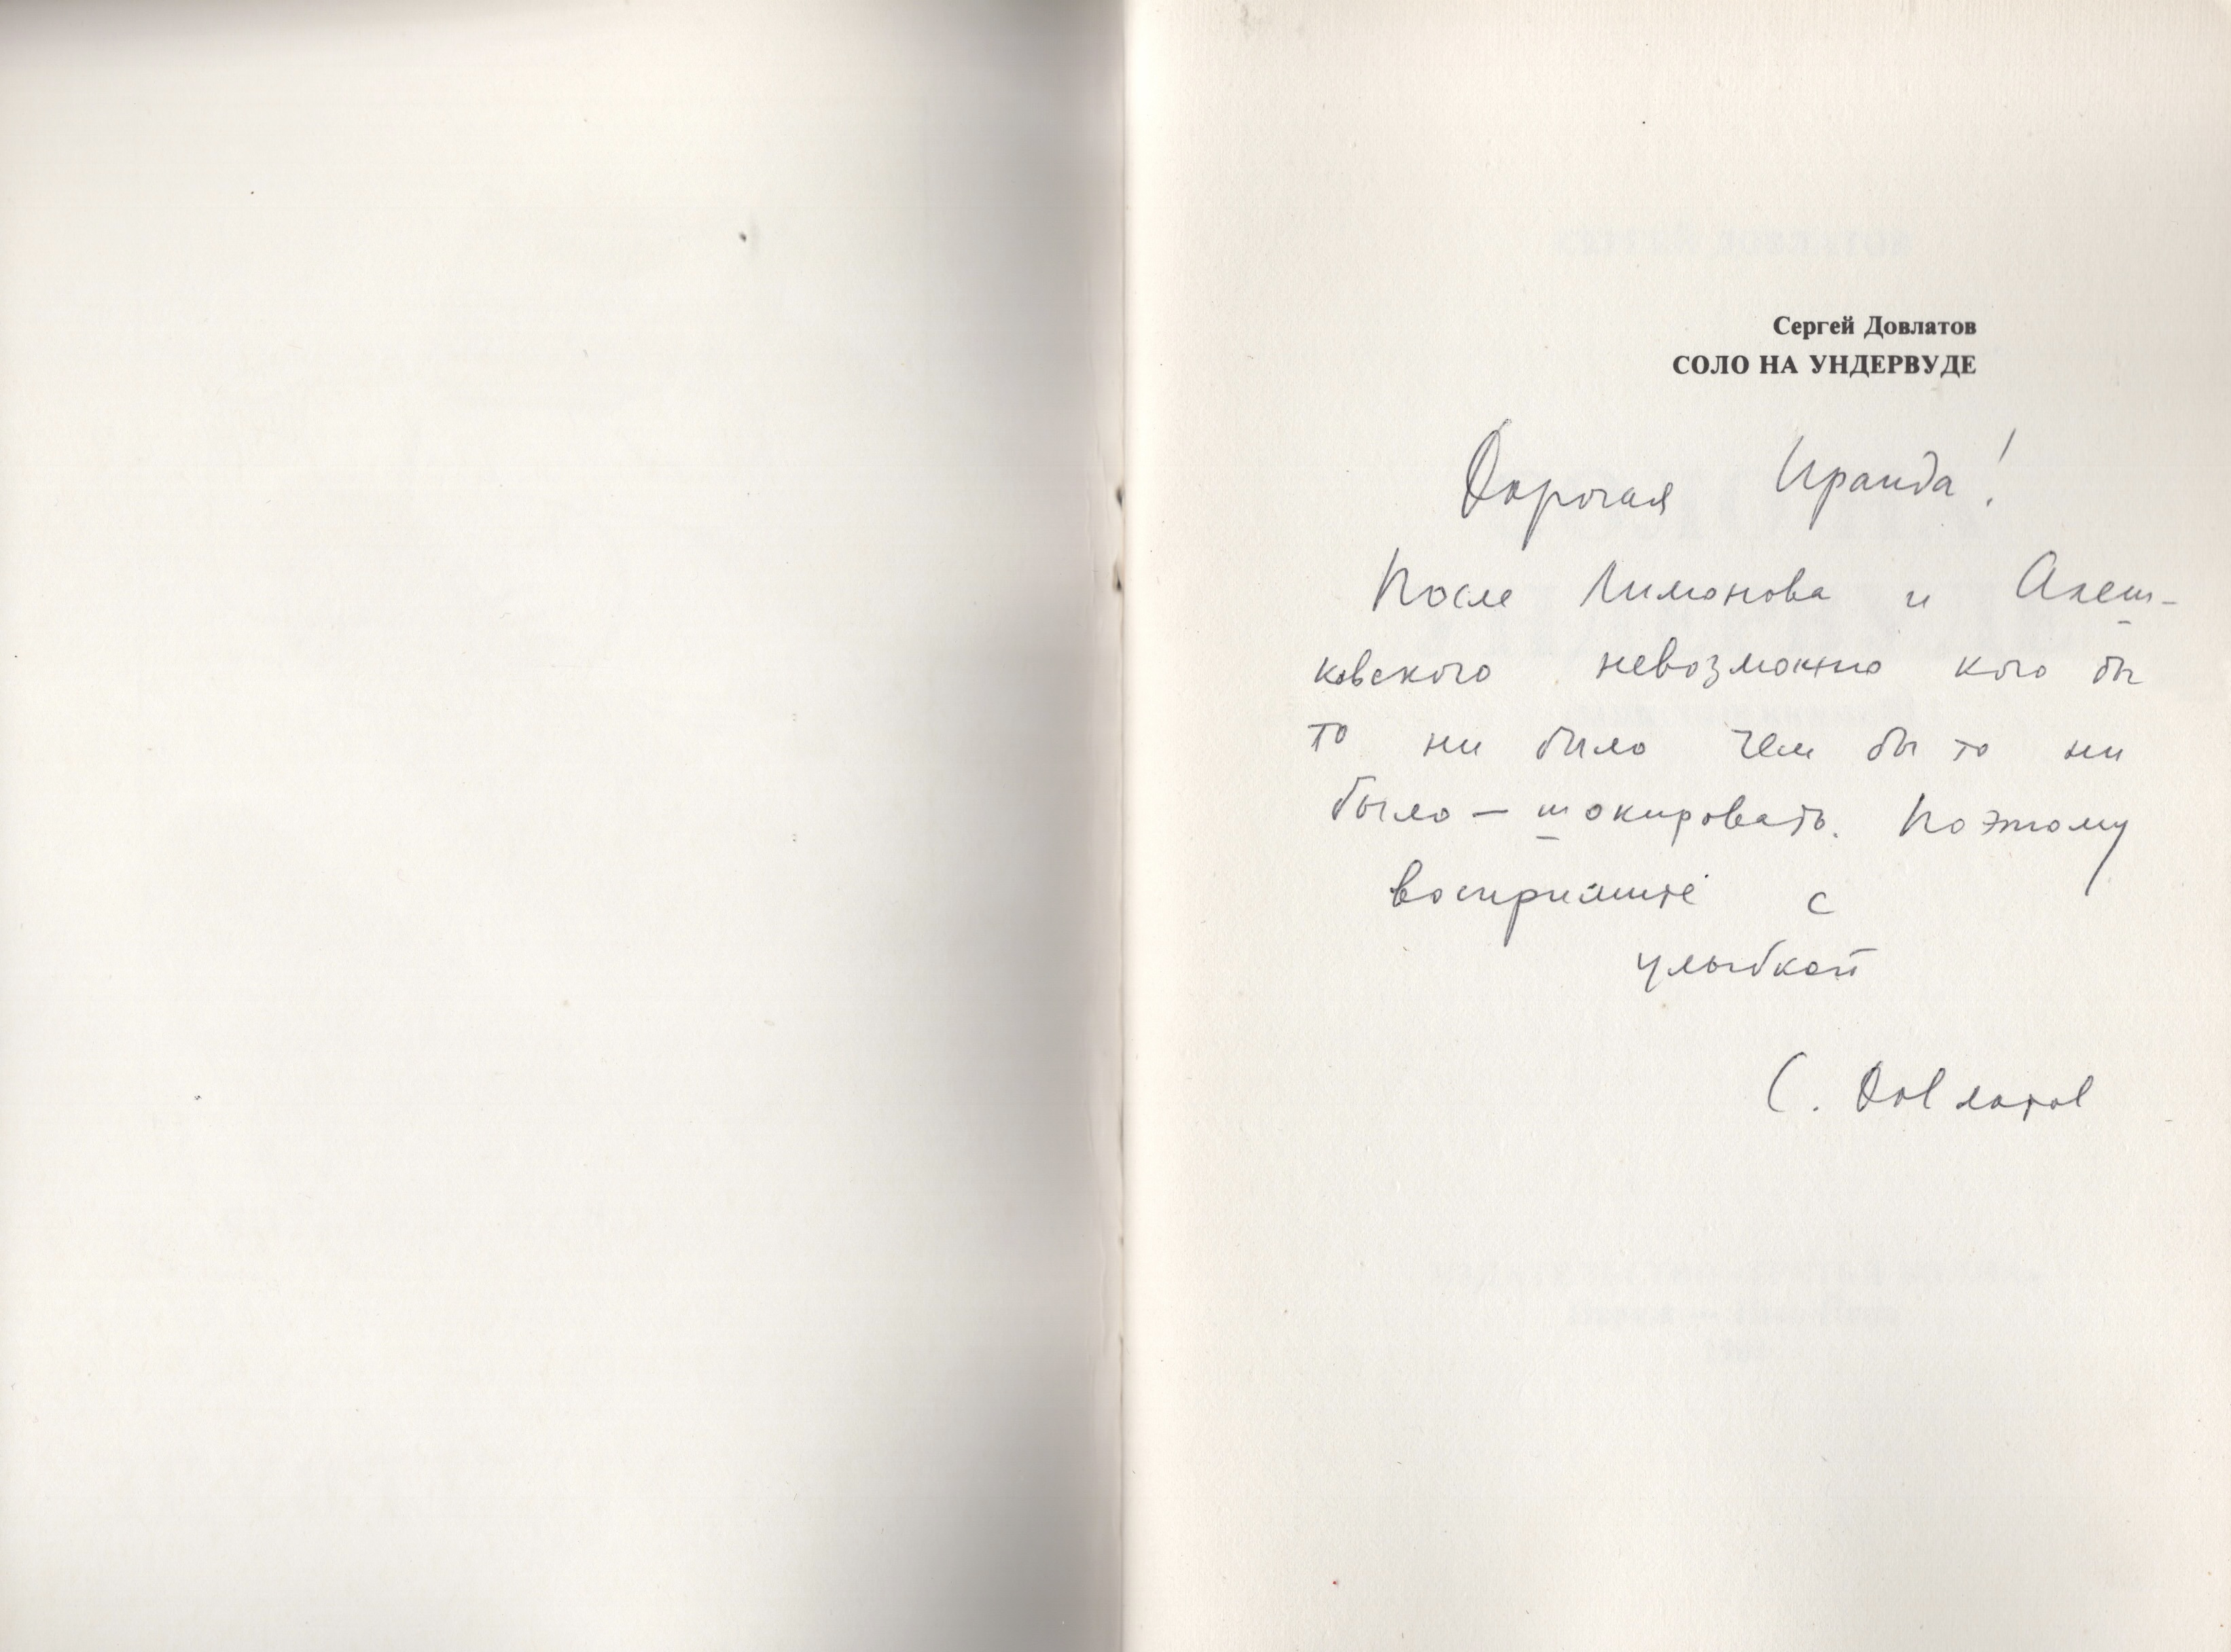 Сергей Довлатов
СОЛО НА УНДЕРВУДЕ
Дорогая Ираида!
После Лимонова и Алеш-
ковского невозможно кого бы
то ни было чем бы то ни
было — шокировать. Поэтому
воспримите с
улыбкой
С. Довлатов